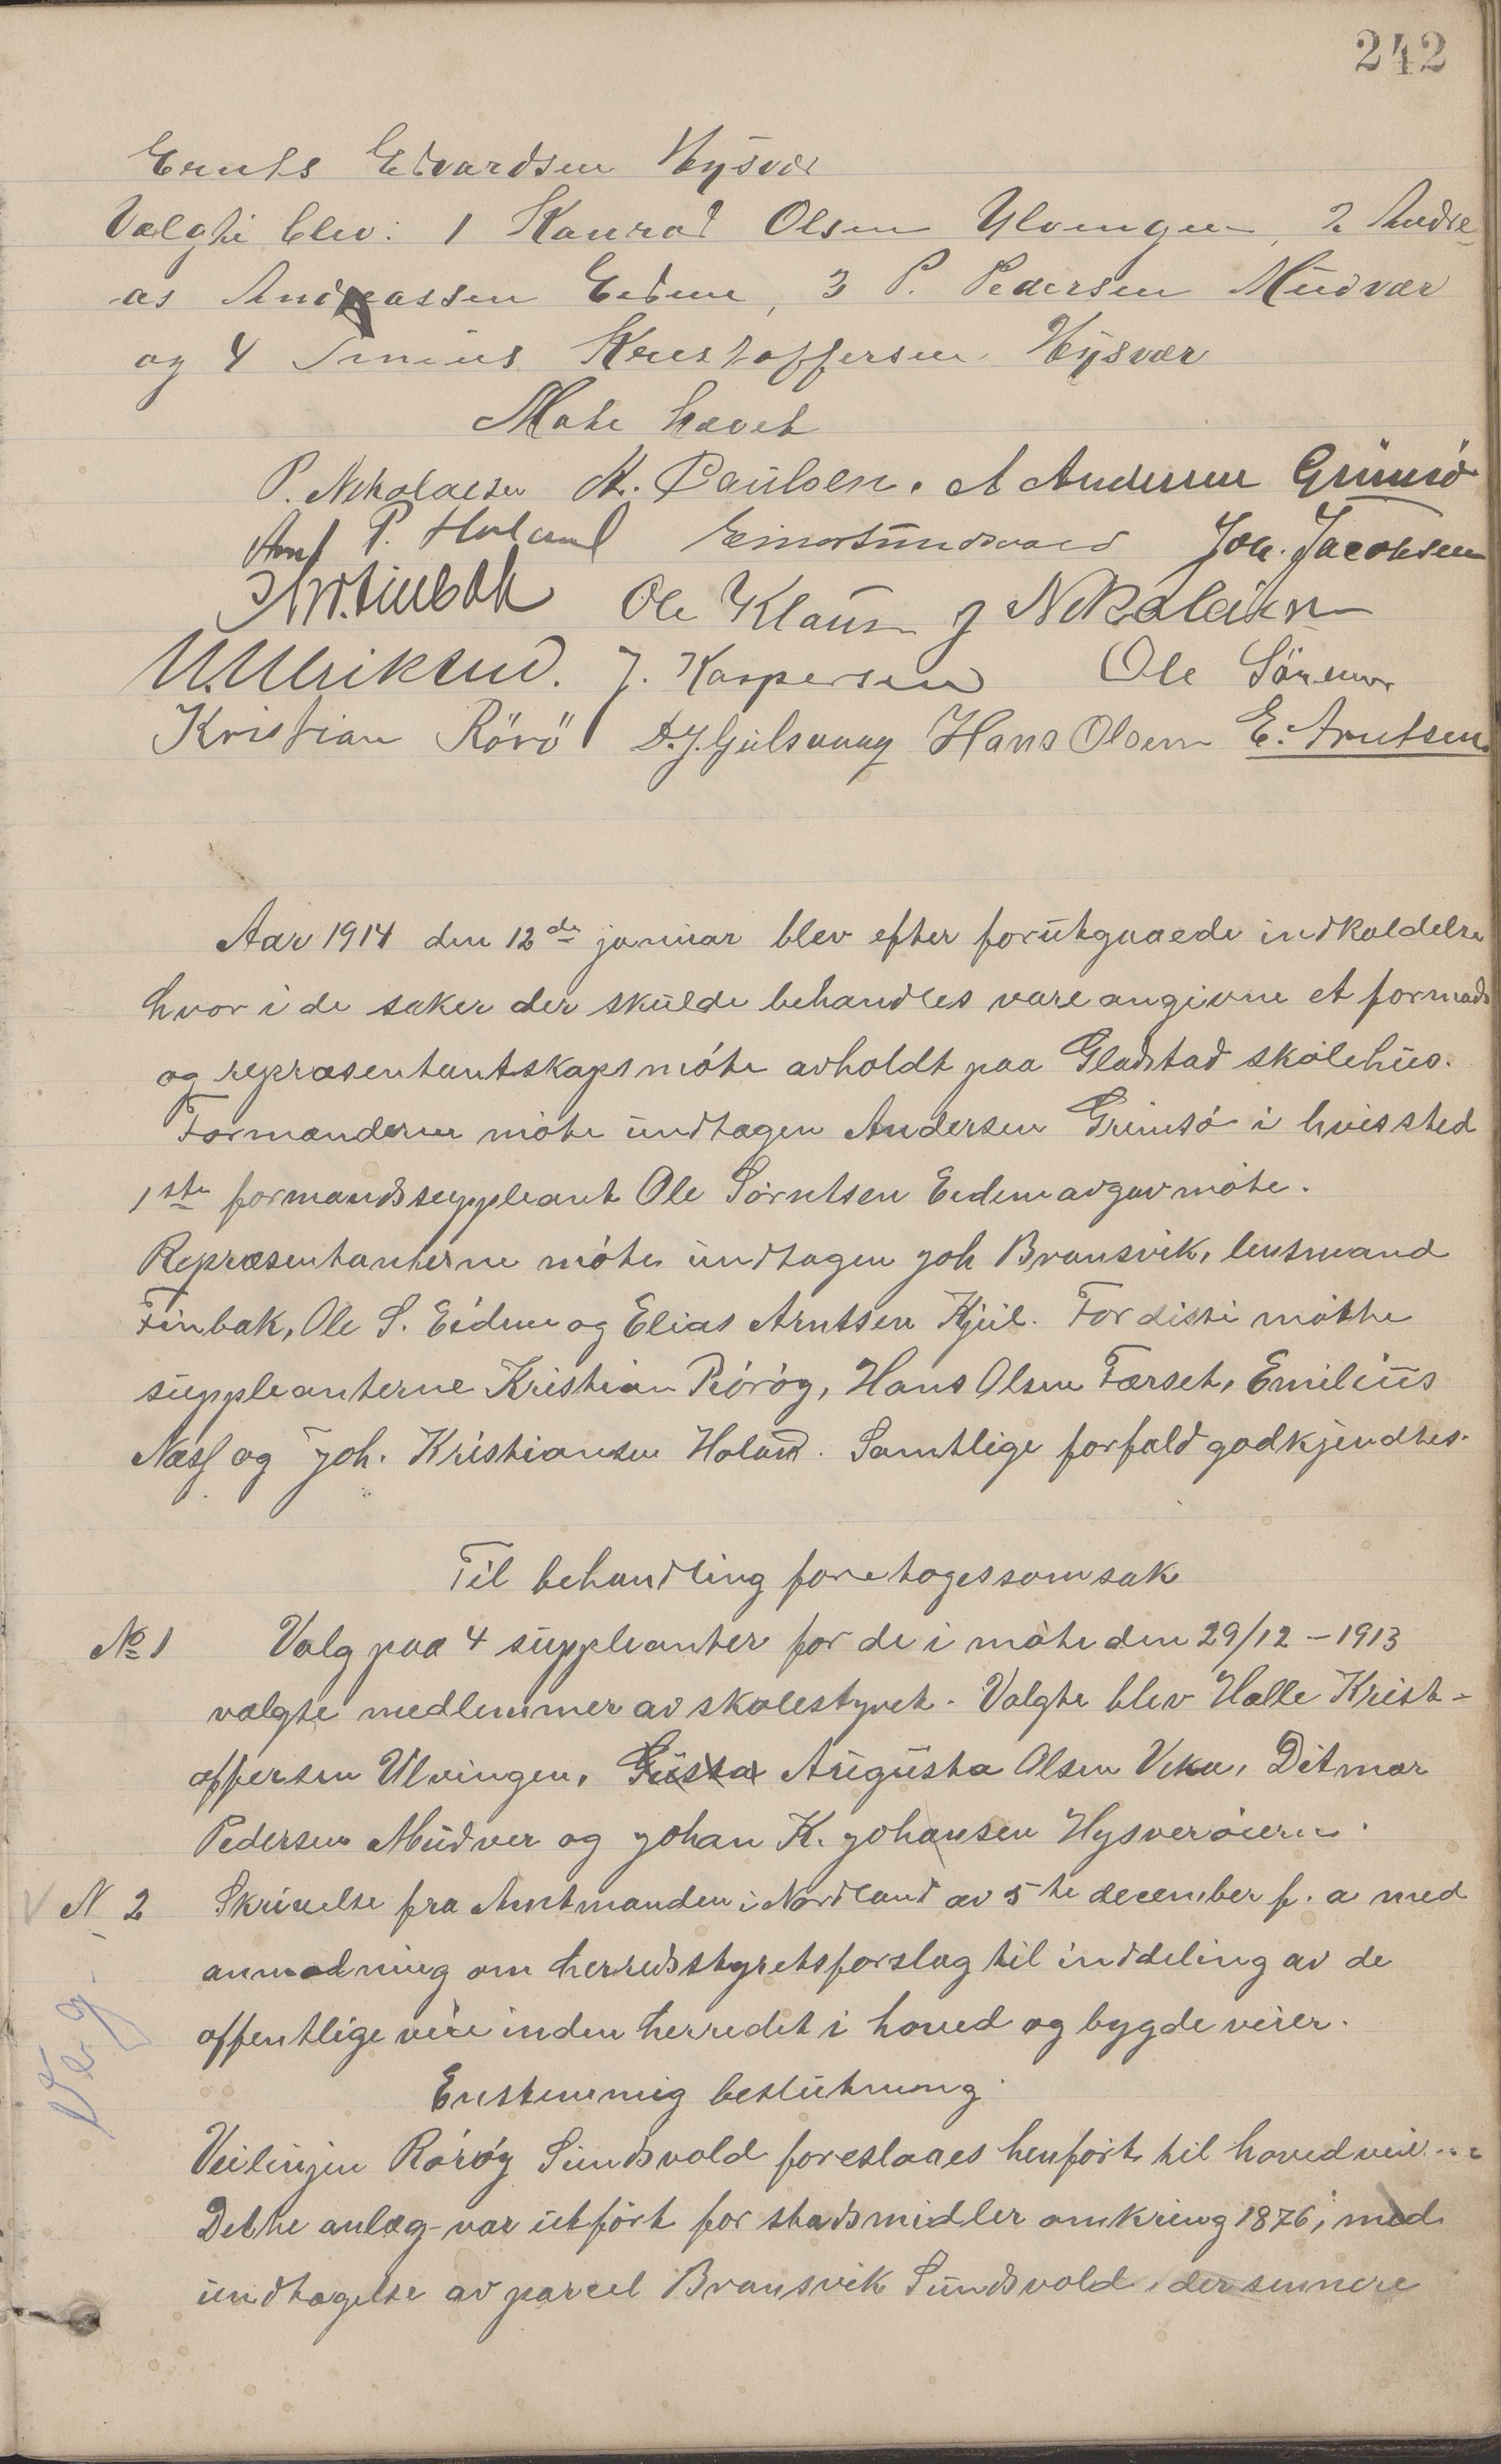 242
Ernts Edvardsen Hysvær
Valgte blev: 1 Konrad Olsen Ulvingen, 2 Andre-
as Andreassen Eidem, 3 P. Pedersen Mudvær
og 4 Kristoffersen Hysvær
Møte hævet
P. Nikolaisen K. Paulsen. A Andersen Grimsø
P. Holand Einar Sundsvold Joh. Jacobsen
Finbak Ole Klausen J Nikolaisen
U. Ulriksen. J. Kaspersen Ole Sørensen
Kristian Rörö D. J. Gulsvaag Hans Olsen E. Arntsen
Aar 1914 den 12de januar blev efter forutgaaede indkaldelse
hvor i de saker der skulde behandles vare angivne et formads
og repræsentantskapsmöte avholdt paa Gladstad skolehus.
Formænderne møte undtagen Andersen Grimsö i hvis sted
1ste formandssuppleant Ole Sörntsen Eidem avgav möte.
Repræsentanterne möte undtagen Joh Bransvik, lensmand
Finbak, Ole S. Eidem og Elias Arntsen Kjul. For disse møtte
suppleanterne Kristian Rörög, Hans Olsen Færset, Emilius
Næss og Joh. Kristiansen Holand. Samtlige forfald godkjendtes.
Til behandling foretoges som sak
No 1 Valg paa 4 suppleanter for de i møte den 29/12 - 1913
valgte medlemmer av skolestyret. Valgte blev Halle Krist-
offersen Ulvingen, Gusta Augusta Olsen Vika, Ditmar
Pedersen Mudver og Johan K. Johansen Hysveröiern.
N 2 Skrivelse fra Amtmanden i Nordland av 5te december f. a med
anmodning om herredsstyretsforslag til inddeling av de
offentlige veie inden herredet i hoved og bygdeveier.
Veg.
Enstemmig beslutning
Veilinjen Rörög Sundsvold foreslaaes henfört til hovedveie
Dette anlæg var utfört for statsmidler omkring 1876, med
undtagelse av parcel Bransvik Sundsvold, der sennere